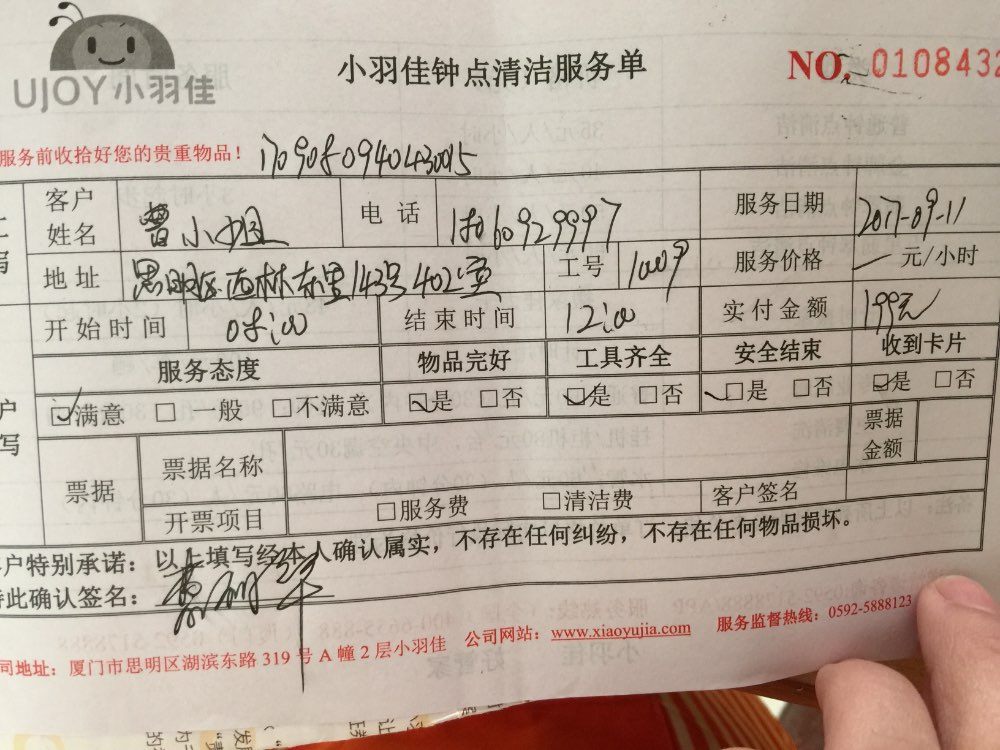 UJOY小羽佳
小羽佳钟点清洁服务单
NO. 0108432
服务前收拾好您的贵重物品!
客户姓名 曹小姐 电话 服务日期 2017-09-11
地址 思明区西林东里143号402室 工号 10079 服务价格 元/小时
开始时间 08:00 结束时间 12:00 实付金额 199元
服务态度 物品完好 工具齐全 安全结束 收到卡片
满意 一般 不满意 是 否 是 否 是 否 是 否
票据 票据名称 票据金额
开票项目 服务费 清洁费 客户签名
户特别承诺：以上填写经本人确认属实，不存在任何纠纷，不存在任何物品损坏。
此确认签名：
司地址：厦门市思明区湖滨东路319号A幢2层小羽佳 公司网站：www.xiaoyujia.com 服务监督热线：0592-5888123